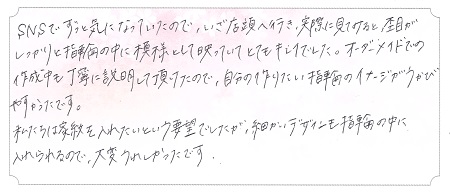 SNSでずっと気になっていたので、いざ店頭へ行き、実際に見てみると、杢目が
しっかりと指輪の中に模様として映っていてとてもキレイでした。オーダーメイドでの
作成中も丁寧に説明して頂けたので、自分の作りたい指輪のイメージがうかび
やすかったです。
私たちは家紋を入れたいという要望でしたが、細かいデザインも指輪の中に
入れられるので、大変うれしかったです.